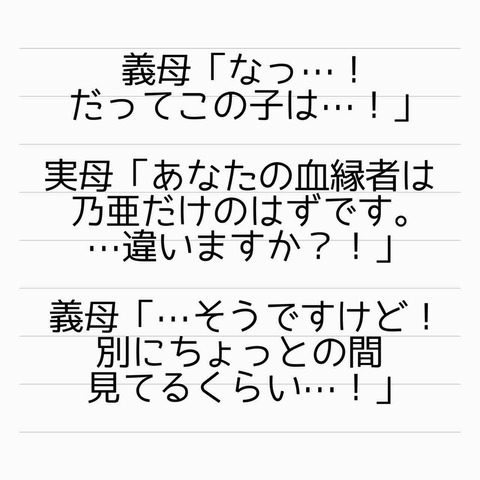 義母「なっ…！
だってこの子は…！」
実母「あなたの血縁者は
乃亜だけのはずです。
…違いますか？！」
義母「…そうですけど！
別にちょっとの間
見てるくらい…！」